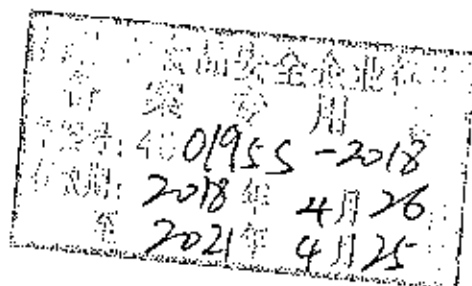 品安全企业标
备案专用章
备案号: 4 0195S-2018
有效期: 2018年4月26
至 2021年4月25